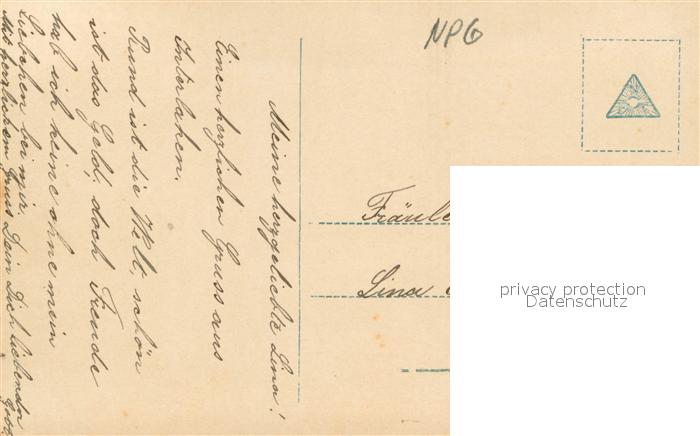 NPG
Meine herzgeliebte Lina!
Einen herzlichen Gruss aus
Interlaken.
Rund ist die Welt, schön
ist das Geld, doch Freude
hab ich keine ohne mein
Liebchen bei mir.
Mit herzlichem Gruss Dein Dich liebender
Fräule
Lina
privacy protection
Datenschutz